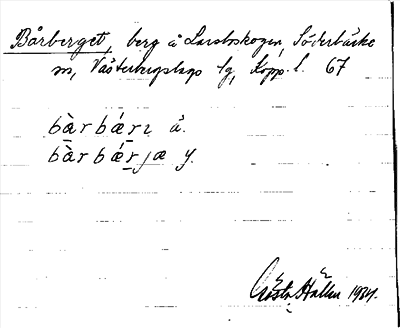 Bårberget, berg å Larsboskogen, Söderbärke
sn, Västerbergslags fg, Kopp. l. 67
bàrbǽrɩ å.
bàrbǽrjæ y.
Gösta Hallén 1934.